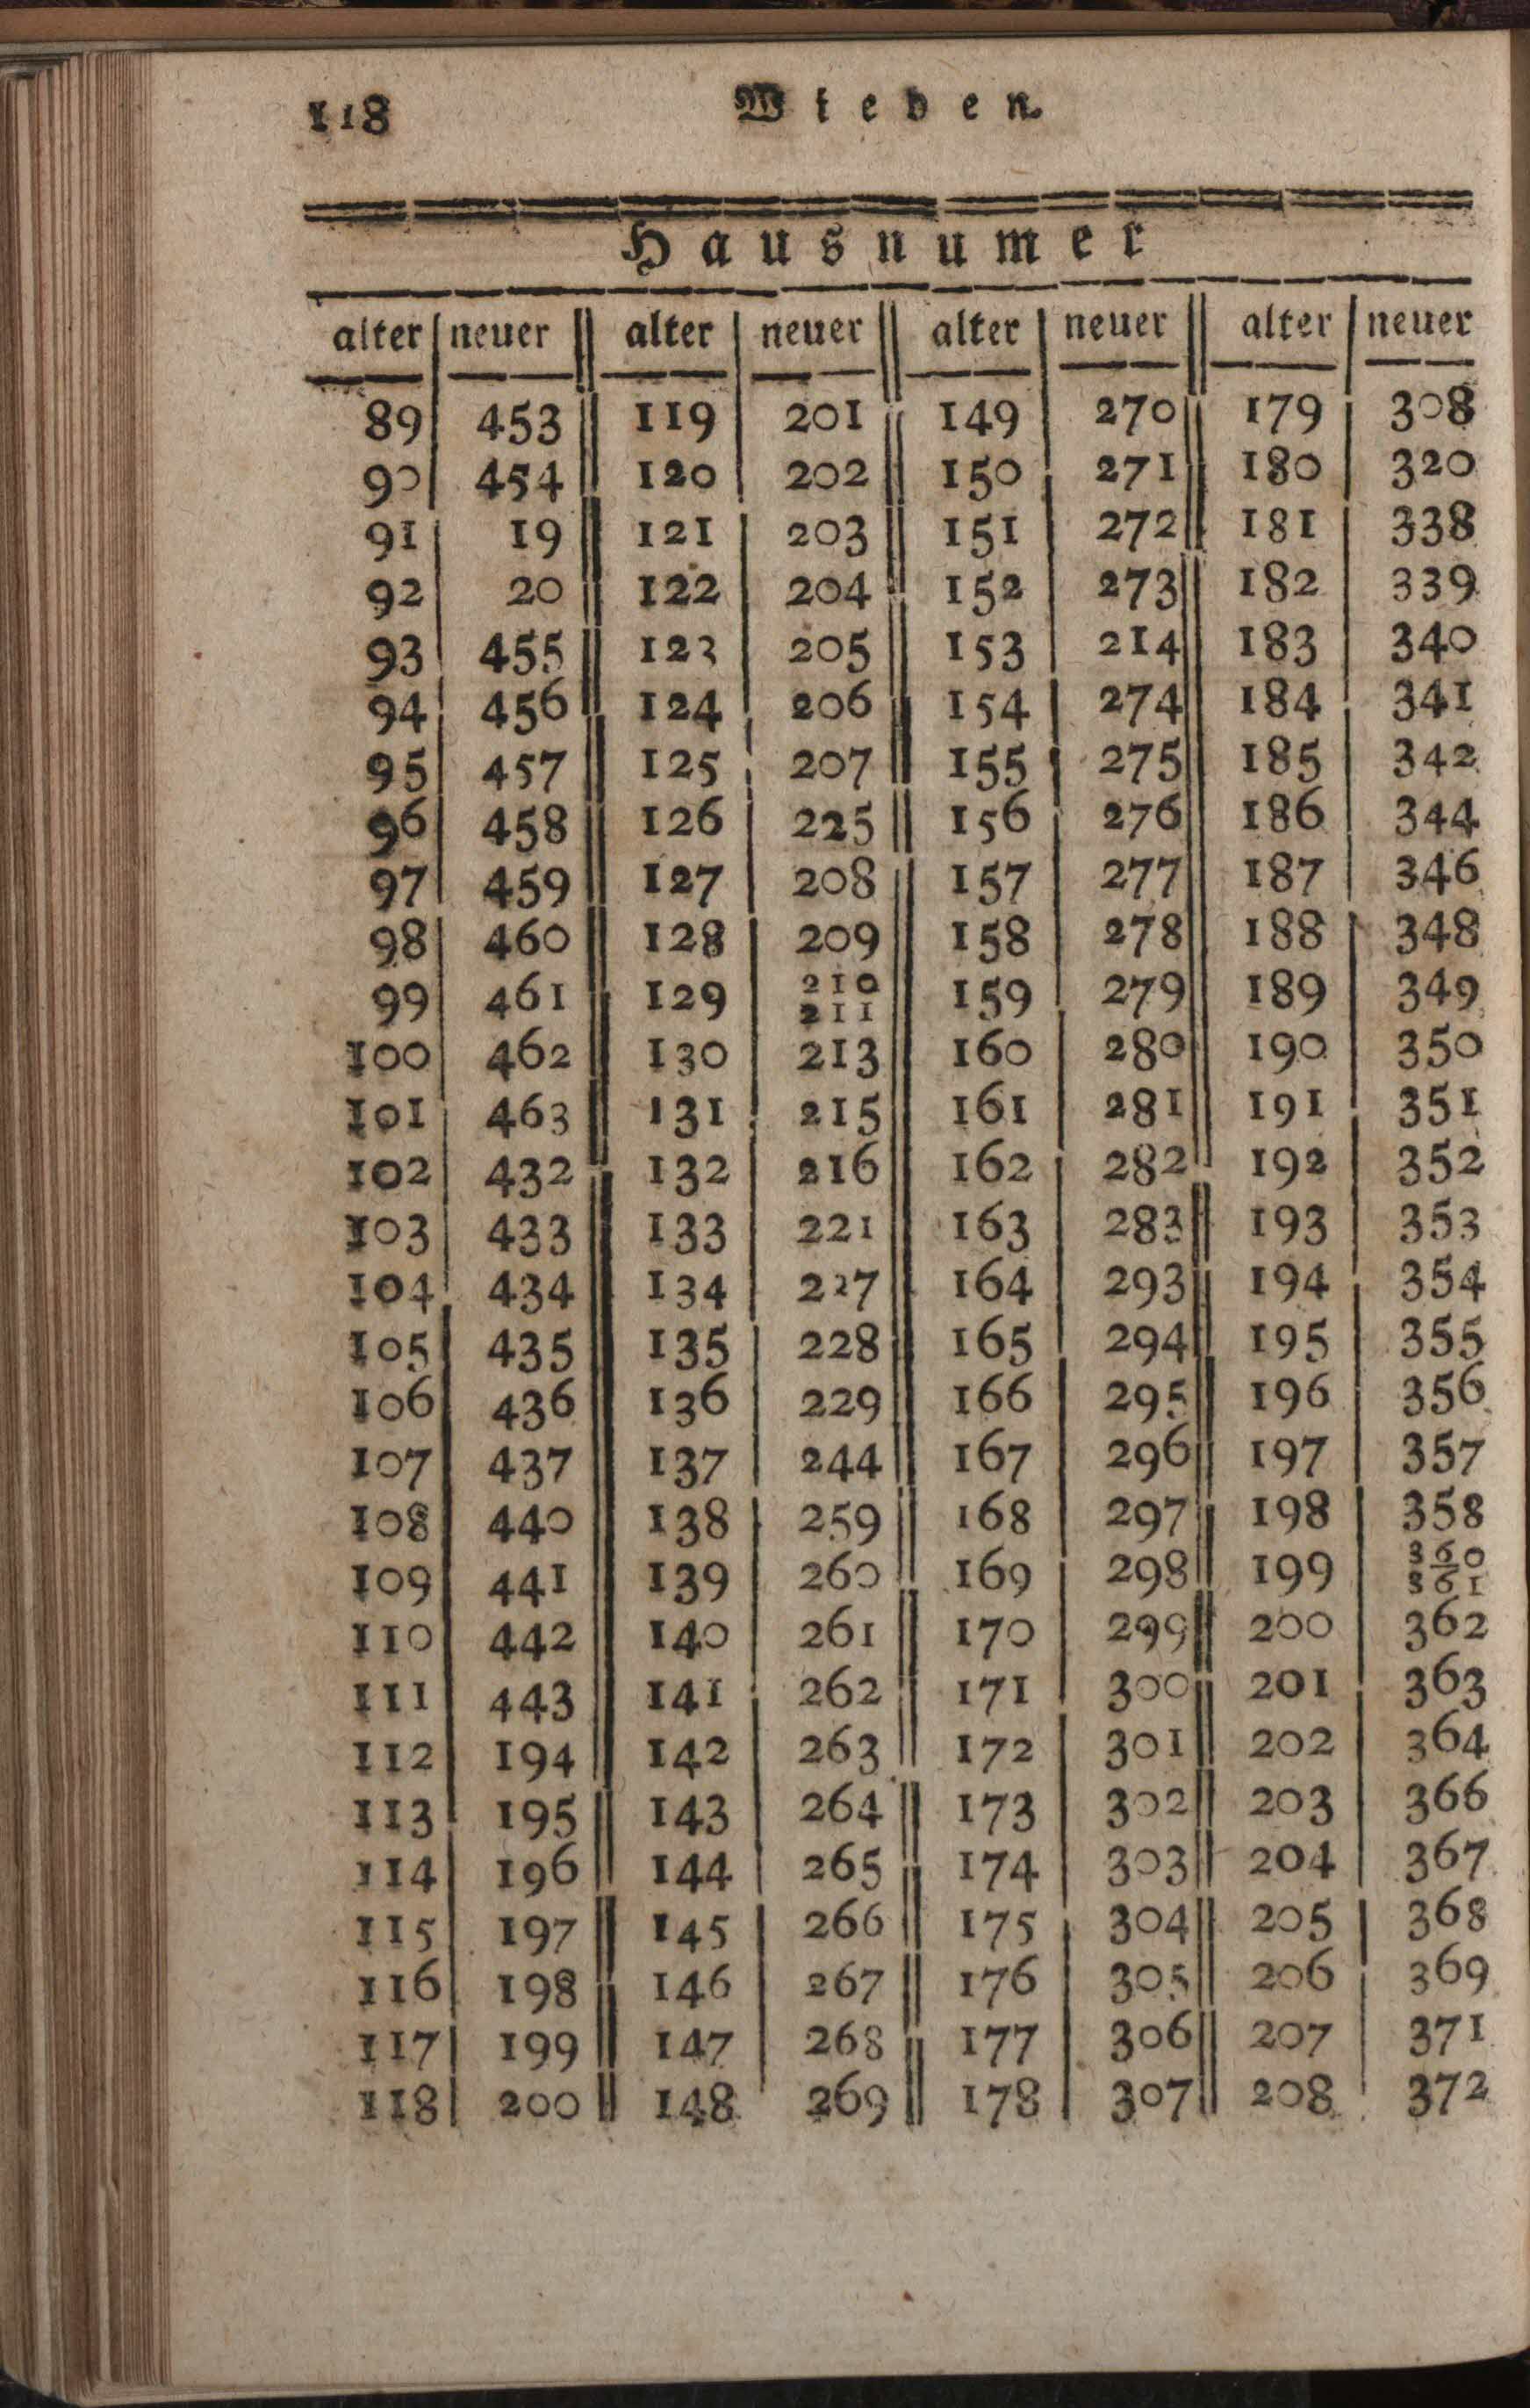 118 Wieden.
Hausnumer
alter neuer alter neuer alter neuer alter neuer
89 453 119 201 149 270 179 308
90 454 120 202 150 271 180 320
91 19 121 203 151 272 181 338
92 20 122 204 152 273 182 339
93 455 123 205 153 214 183 340
94 456 124 206 154 274 184 341
95 457 125 207 155 275 185 342
96 458 126 225 156 276 186 344
97 459 127 208 157 277 187 346
98 460 128 209 158 278 188 348
99 461 129 210 211 159 279 189 349
100 462 130 213 160 280 190 350
101 463 131 215 161 281 191 351
102 432 132 216 162 282 192 352
103 433 133 221 163 283 193 353
104 434 134 227 164 293 194 354
105 435 135 228 165 294 195 355
106 436 136 229 166 295 196 356
107 437 137 244 167 296 197 357
108 440 138 259 168 297 198 358
109 441 139 260 169 298 199 360 361
110 442 140 261 170 299 200 362
111 443 141 262 171 300 201 363
112 194 142 263 172 301 202 364
113 195 143 264 173 302 203 366
114 196 144 265 174 303 204 367
115 197 145 266 175 304 205 368
116 198 146 267 176 305 206 369
117 199 147 268 177 306 207 371
118 200 148 269 178 307 208 372